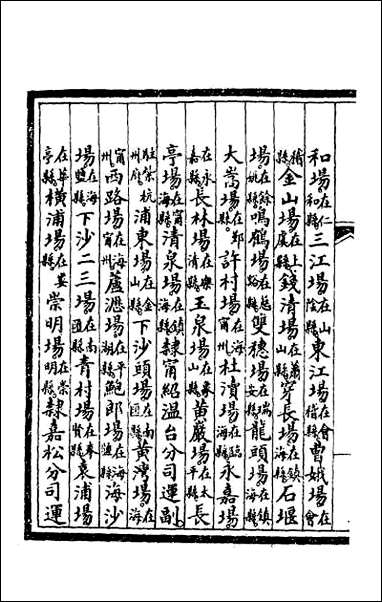 和場在仁和縣三江場在山陰縣東江場在會稽縣曹娥場在會
稽縣金山場在上虞縣錢清場在蕭山縣穿長場在鎮海縣石堰
場在餘姚縣鳴鶴場在慈谿縣雙穗場在瑞安縣龍頭場在鎮海縣
大嵩場在鄞縣。許村場在海甯州杜瀆場在臨海縣永嘉場。
在永嘉縣長林場在樂清縣玉泉場在象山縣黃巖場在太平縣長
亭場在甯海縣清泉場在鎮海縣隸甯紹溫台分司運副。
駐紮杭州府浦東場在金山縣下沙頭場在南匯縣黃灣場。在海
甯州西路場在海甯州蘆瀝場在平湖縣鮑郎場在海鹽縣海沙
場在海鹽縣下沙二三場在南匯縣青村場在奉賢縣袁浦場
在華亭縣橫浦場在婁縣崇明場在崇明縣隸嘉松分司運